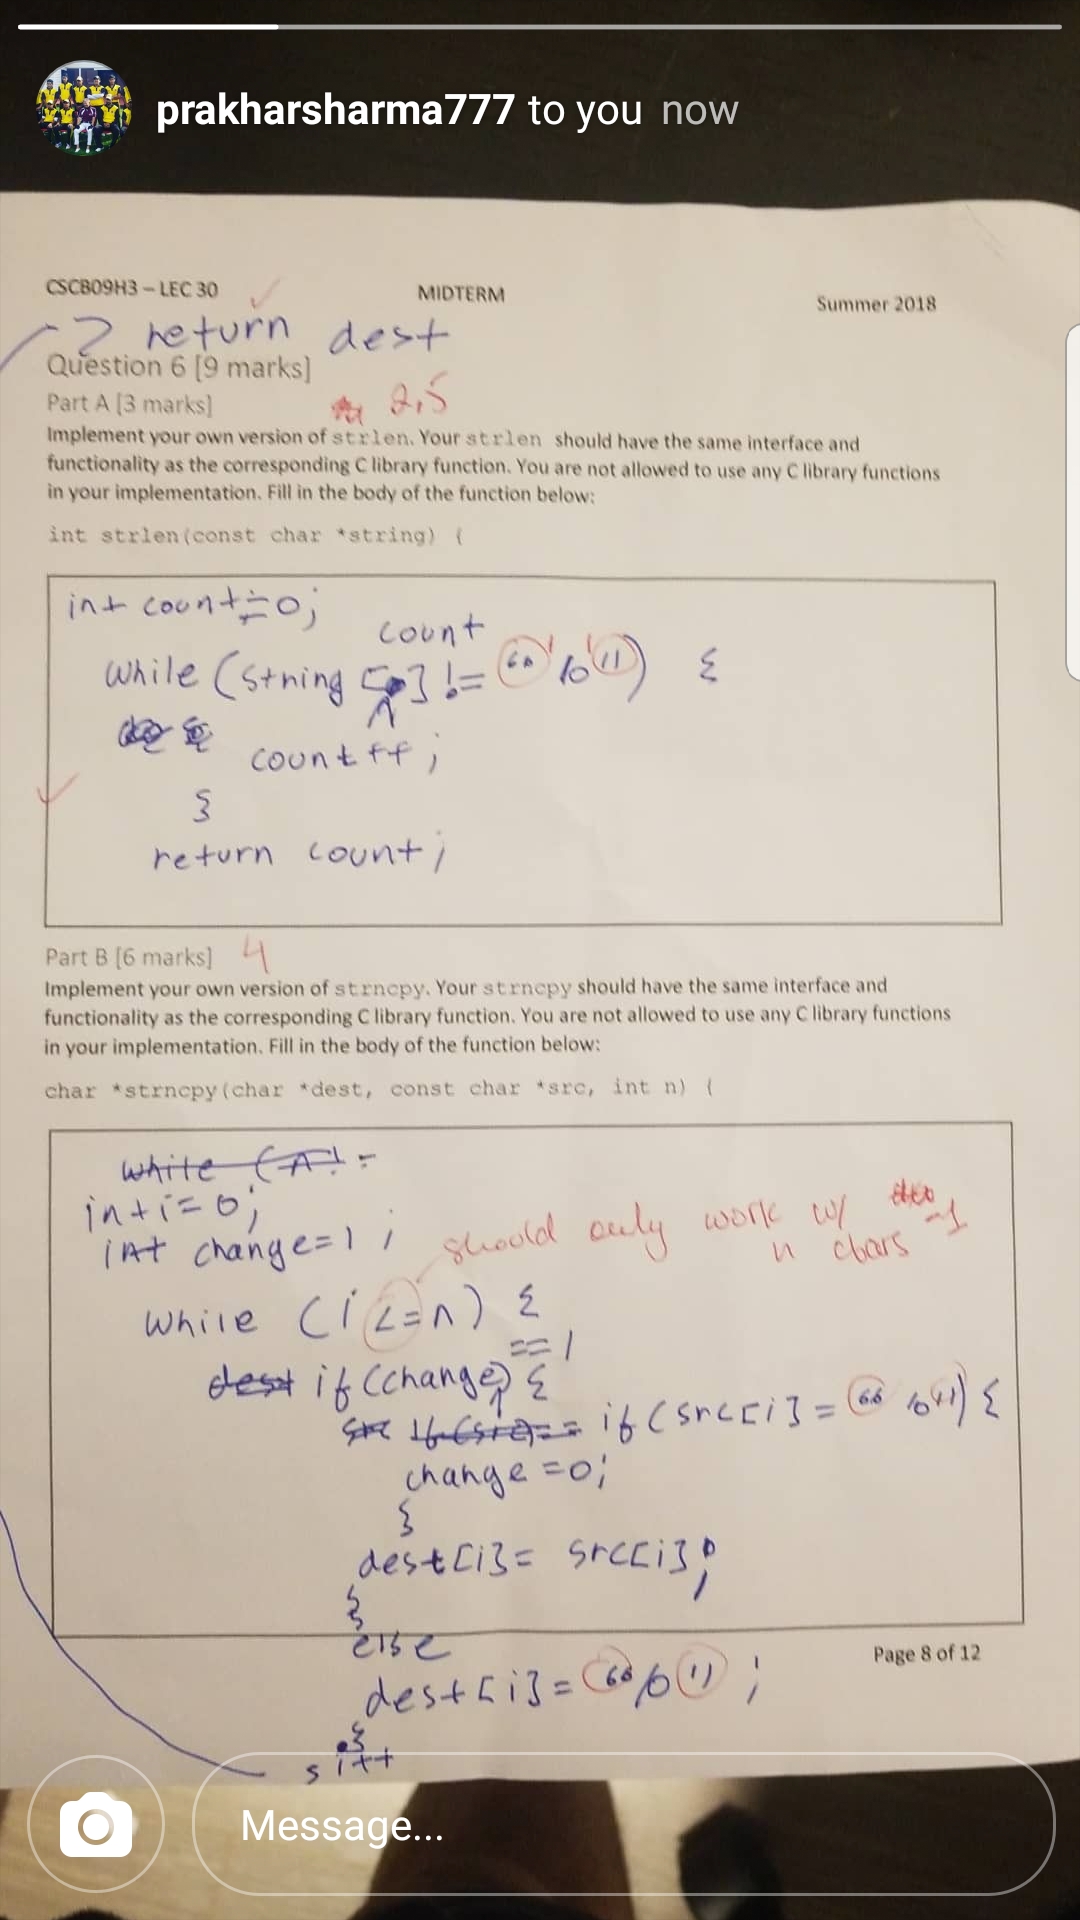 prakharsharma777 to you now
CSCB09H3 – LEC 30 MIDTERM Summer 2018
return dest
Question 6 [9 marks]
Part A [3 marks] 2,5
Implement your own version of strlen. Your strlen should have the same interface and
functionality as the corresponding C library function. You are not allowed to use any C library functions
in your implementation. Fill in the body of the function below:
int strlen(const char *string) {
int count = 0;
count
while (string [ ] != "\0") {
count++;
}
return count;
Part B [6 marks] 4
Implement your own version of strncpy. Your strncpy should have the same interface and
functionality as the corresponding C library function. You are not allowed to use any C library functions
in your implementation. Fill in the body of the function below:
char *strncpy(char *dest, const char *src, int n) {
while (n! =
int i = 0;
int change = 1;
should only work w/ -1
n chars
while (i <= n) {
== 1
dest if (change) {
if (src[i] = "\0") {
change = 0;
}
dest[i] = src[i];
}
else
dest[i] = "\0";
}
i++
Page 8 of 12
Message...